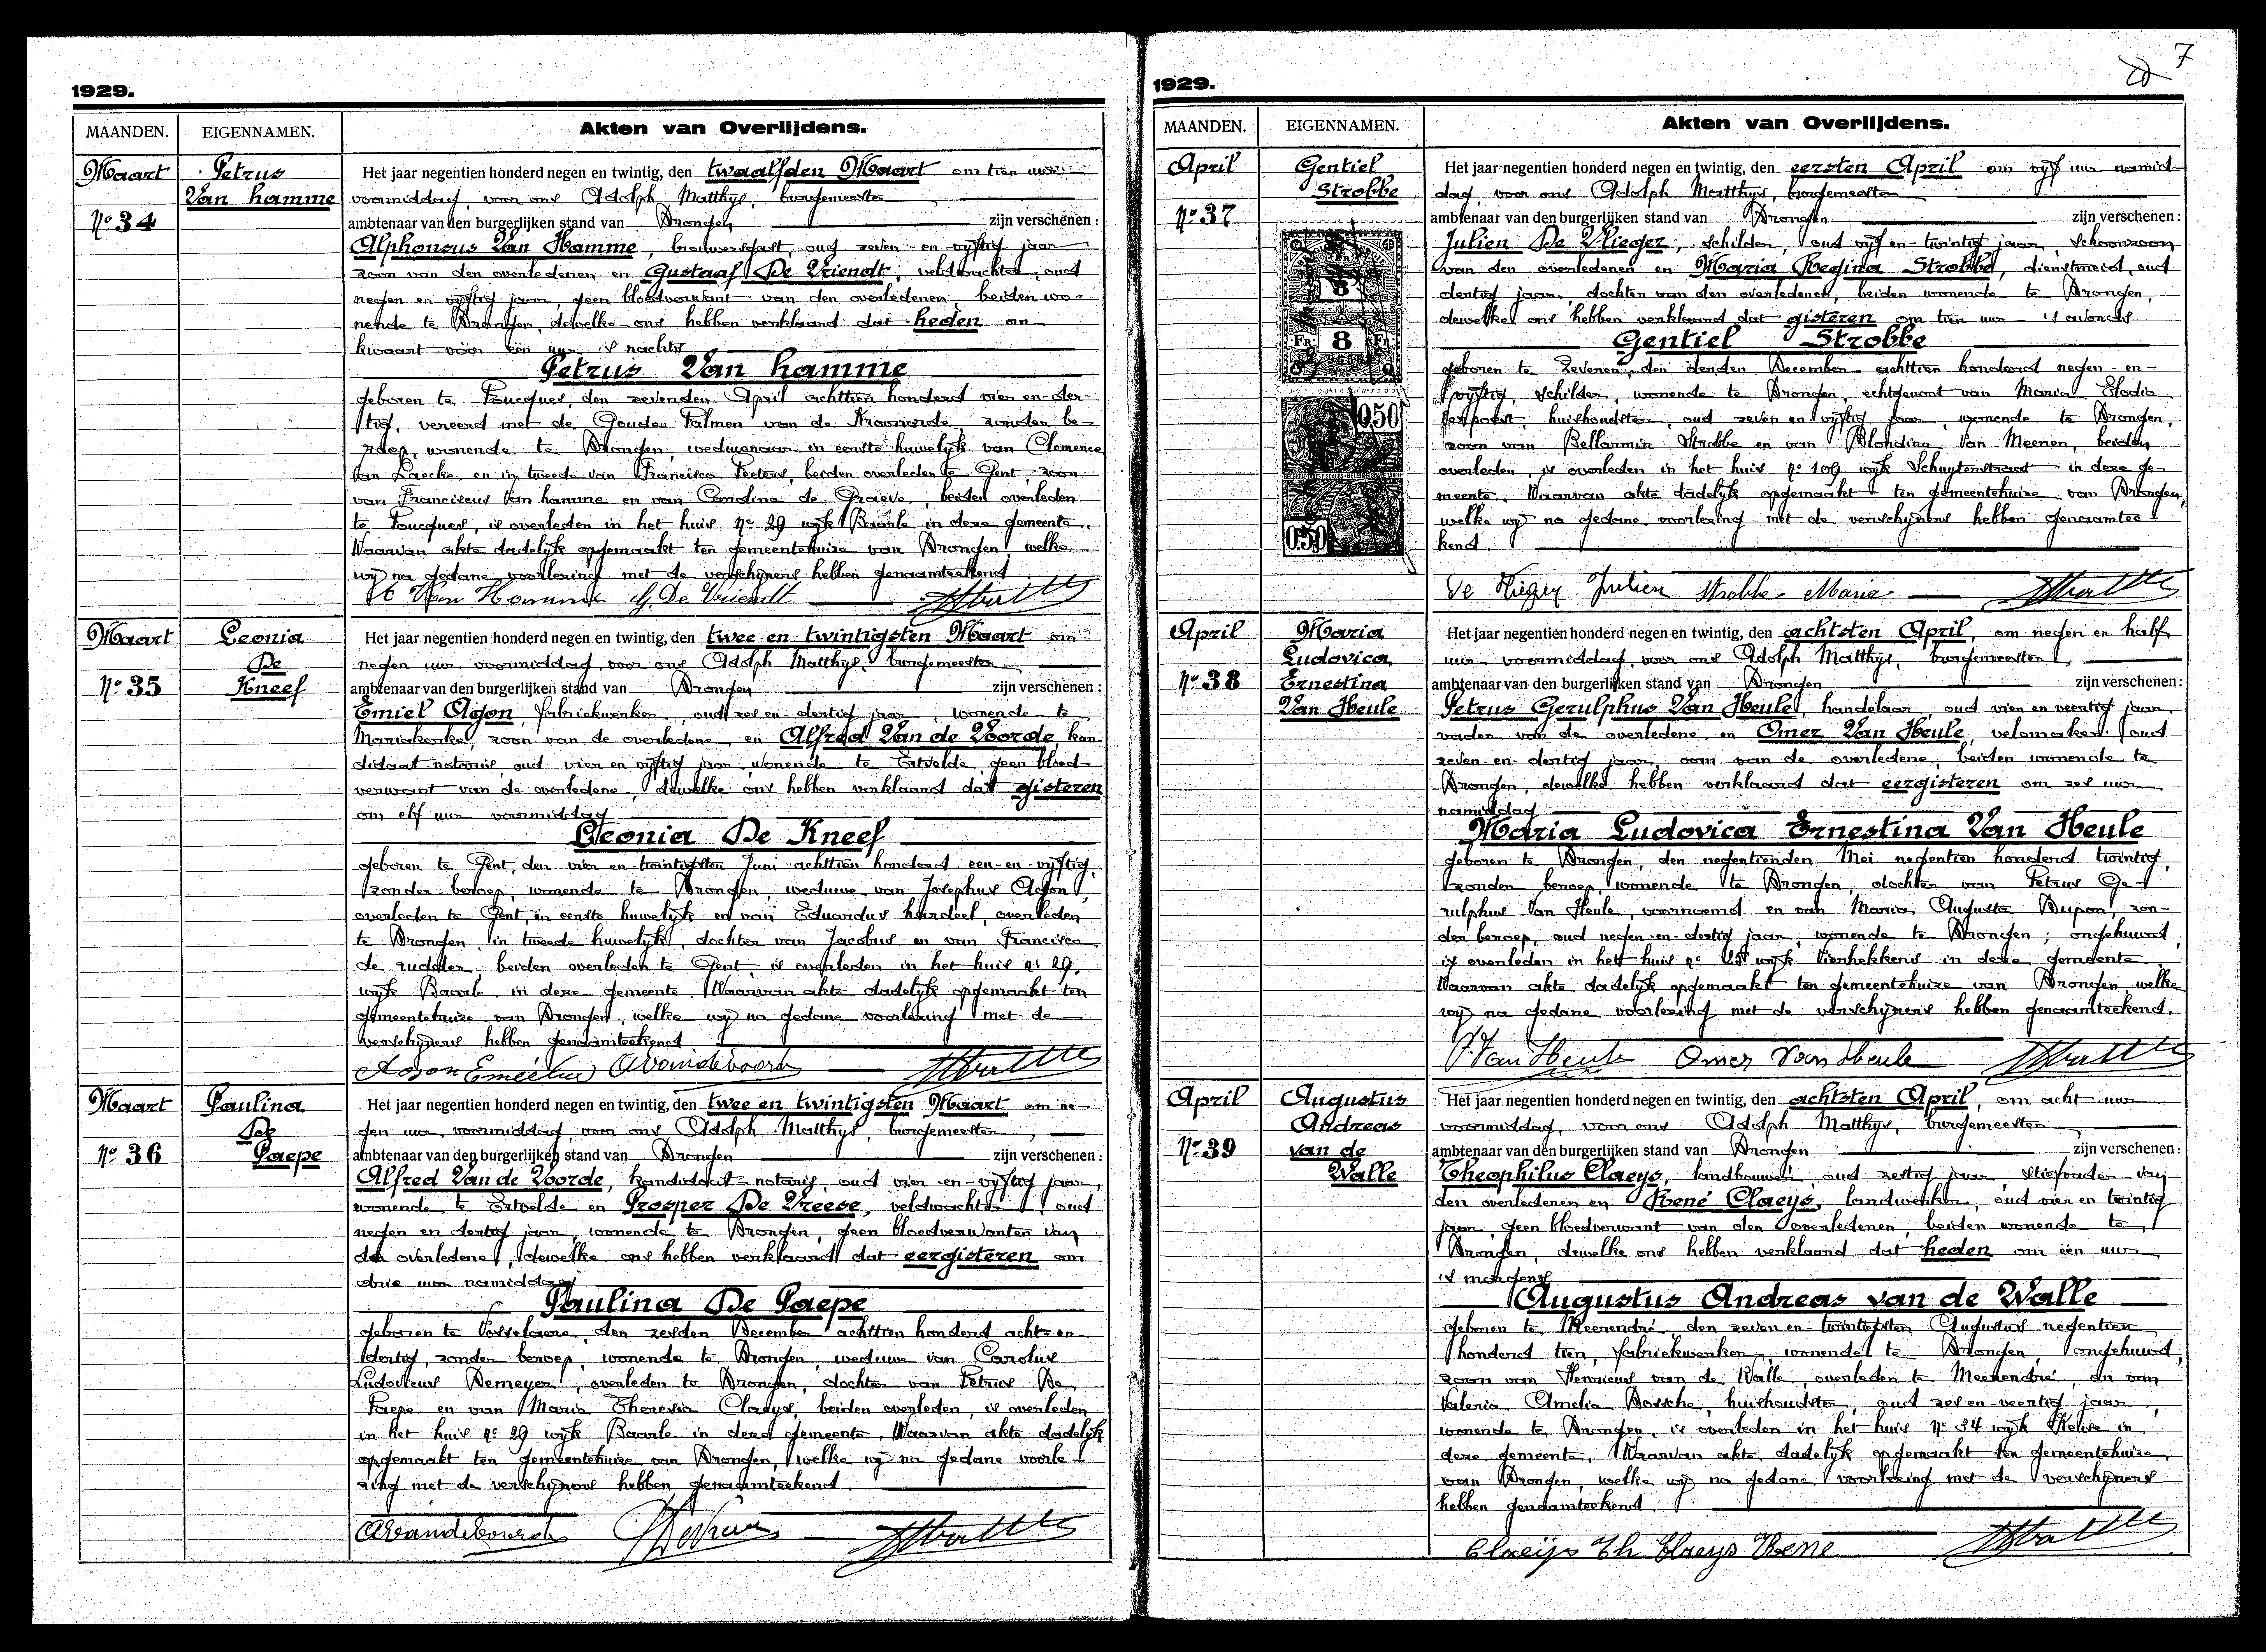 1929.
MAANDEN. EIGENNAMEN. Akten van Overlijdens.
Maart Petrus Van hamme
Nº 34
Het jaar negentien honderd negen en twintig, den twaalfden Maart om tien uur
voormiddag, voor ons Adolph Matthys, burgemeester
ambtenaar van den burgerlijken stand van Drongen zijn verschenen:
Alphonsus Van Hamme, brouwersgast, oud zeven-en-vijftig jaar
zoon van den overledenen en Gustaaf De Vriendt, veldwachter, oud
negen en vijftig jaar, geen bloedverwant van den overledenen, beiden wo-
nende te Drongen, dewelke ons hebben verklaard dat heden om
kwaart vóór één uur 's nachts
Petrus Van hamme
geboren te Poucques, den zevenden April achttien honderd vier en-der-
tig, vereerd met de Gouden Palmen van de Kroonorde, zonder be-
roep, wonende te Drongen, weduwnaar in eerste huwelijk van Clemence
Van Laecke en in tweede van Francisca Peeters, beiden overleden te Gent, zoon
van Franciscus Van hamme en van Carolina de Graeve, beiden overleden
te Poucques, is overleden in het huis nº 29 wijk Baarle in deze gemeente.
Waarvan akte dadelijk opgemaakt ten gemeentehuize van Drongen, welke
wij na gedane voorlezing met de verschijners hebben genaamteekend
A Van Hamme G. De Vriendt
Maart Leonia De Kneef
Nº 35
Het jaar negentien honderd negen en twintig, den twee-en-twintigsten Maart om
negen uur voormiddag, voor ons Adolph Matthys, burgemeester
ambtenaar van den burgerlijken stand van Drongen zijn verschenen:
Emiel Agon, fabriekwerker, oud zes en-dertig jaar, wonende te
Mariakerke, zoon van de overledene, en Alfred Van de Voorde kan
didaat notaris, oud vier en vijftig jaar, wonende te Ertvelde, geen bloed-
verwant van de overledene, dewelke ons hebben verklaard dat gisteren
om elf uur voormiddag
Leonia De Kneef
geboren te Gent, den vier en-twintigsten Juni achttien honderd een-en-vijftig,
zonder beroep, wonende te Drongen, weduwe van Josephus Agon,
overleden te Gent, in eerste huwelijk en van Eduardus hardeel, overleden
te Drongen, in tweede huwelijk, dochter van Jacobus en van Francisca
de rudder, beiden overleden te Gent, is overleden in het huis nº 29,
wijk Baarle in deze gemeente. Waarvan akte dadelijk opgemaakt ten
gemeentehuize van Drongen, welke wij na gedane voorlezing met de
verschijners hebben genaamteekend
Agon Emielius AVandevoorde
Maart Paulina De Paepe
Nº 36
Het jaar negentien honderd negen en twintig, den twee en twintigsten Maart om ne-
gen uur voormiddag, voor ons Adolph Matthys, burgemeester
ambtenaar van den burgerlijken stand van Drongen zijn verschenen:
Alfred Van de Voorde, kandidaat-notaris, oud vier-en-vijftig jaar,
wonende te Ertvelde en Prosper De Vreese, veldwachter, oud
negen en dertig jaar, wonende te Drongen, geen bloedverwanten van
de overledene, dewelke ons hebben verklaard dat eergisteren om
drie uur namiddag
Paulina De Paepe
geboren te Vosselaere, den zesden December achttien honderd acht-en-
dertig, zonder beroep, wonende te Drongen, weduwe van Carolus
Ludovicus Demeyer, overleden te Drongen, dochter van Petrus De
Paepe en van Maria Theresia Claeys, beiden overleden, is overleden
in het huis nº 29 wijk Baarle in deze gemeente. Waarvan akte dadelijk
opgemaakt ten gemeentehuize van Drongen, welke wij na gedane voorle-
zing met de verschijners hebben genaamteekend.
AVandevoorde
7
1929.
MAANDEN. EIGENNAMEN. Akten van Overlijdens.
April Gentiel Strobbe
Nº 37
8
FR 8 FR
0.50
0.50
Het jaar negentien honderd negen en twintig, den eersten April om vijf uur namid-
dag, voor ons Adolph Matthys, burgemeester
ambtenaar van den burgerlijken stand van Drongen zijn verschenen:
Julien De Vlieger, schilder, oud vijf en-twintig jaar, schoonzoon
van den overledenen en Maria Regina Strobbe, dienstmeid, oud
dertig jaar, dochter van den overledenen, beiden wonende te Drongen,
dewelke ons hebben verklaard dat gisteren om tien uur 's avonds
Gentiel Strobbe
geboren te Zevenen, den derden December achttien honderd negen-en-
vijftig, schilder, wonende te Drongen, echtgenoot van Maria Elodia
huishoudster, oud zeven en vijftig jaar, wonende te Drongen,
zoon van Bellarmin Strobbe en van Blondina Van Meenen, beiden
overleden, is overleden in het huis nº 109 wijk Schuytenstraat in deze ge-
meente. Waarvan akte dadelijk opgemaakt ten gemeentehuize van Drongen,
welke wij na gedane voorlezing met de verschijners hebben genaamtee-
kend.
De Vlieger Julien Strobbe Maria
April Maria Ludovica Ernestina Van Heule
Nº 38
Het jaar negentien honderd negen en twintig, den achtsten April, om negen en half
uur voormiddag, voor ons Adolph Matthys, burgemeester
ambtenaar van den burgerlijken stand van Drongen zijn verschenen:
Petrus Gerulphus Van Heule, handelaar, oud vier en veertig jaar,
vader van de overledene en Omer Van Heule, velomaker, oud
zeven-en-dertig jaar, oom van de overledene, beiden wonende te
Drongen, dewelke hebben verklaard dat eergisteren om zes uur
namiddag
Maria Ludovica Ernestina Van Heule
geboren te Drongen, den negentienden Mei negentien honderd twintig,
zonder beroep, wonende te Drongen, dochter van Petrus Ge-
rulphus Van Heule, voornoemd en van Maria Augusta Dupon, zon-
der beroep, oud negen-en-dertig jaar, wonende te Drongen; ongehuwd,
is overleden in het huis nº 25 wijk Vierhekkens in deze gemeente
Waarvan akte dadelijk opgemaakt ten gemeentehuize van Drongen, welke
wij na gedane voorlezing met de verschijners hebben genaamteekend.
P. Van Heule Omer Van Heule
April Augustus Andreas van de Walle
Nº 39
Het jaar negentien honderd negen en twintig, den achtsten April, om acht uur
voormiddag, voor ons Adolph Matthys, burgemeester
ambtenaar van den burgerlijken stand van Drongen zijn verschenen:
Theophilus Claeys, landbouwer, oud zestig jaar, stiefvader van
den overledenen en René Claeys, landwerker, oud vier en twintig
jaar, geen bloedverwant van den overledenen, beiden wonende te
Drongen, dewelke ons hebben verklaard dat heden om één uur
's morgens
Augustus Andreas van de Walle
geboren te Meerendré, den zeven en-twintigsten Augustus negentien
honderd tien, fabriekwerker, wonende te Drongen, ongehuwd,
zoon van Henricus van de Walle, overleden te Meerendré, en van
Valeria Amelia Dossche, huishoudster, oud zes en veertig jaar,
wonende te Drongen, is overleden in het huis nº 34 wijk in
deze gemeente. Waarvan akte dadelijk opgemaakt ten gemeentehuize
van Drongen, welke wij na gedane voorlezing met de verschijners
hebben genaamteekend.
Claeijs Th Claeys Rene